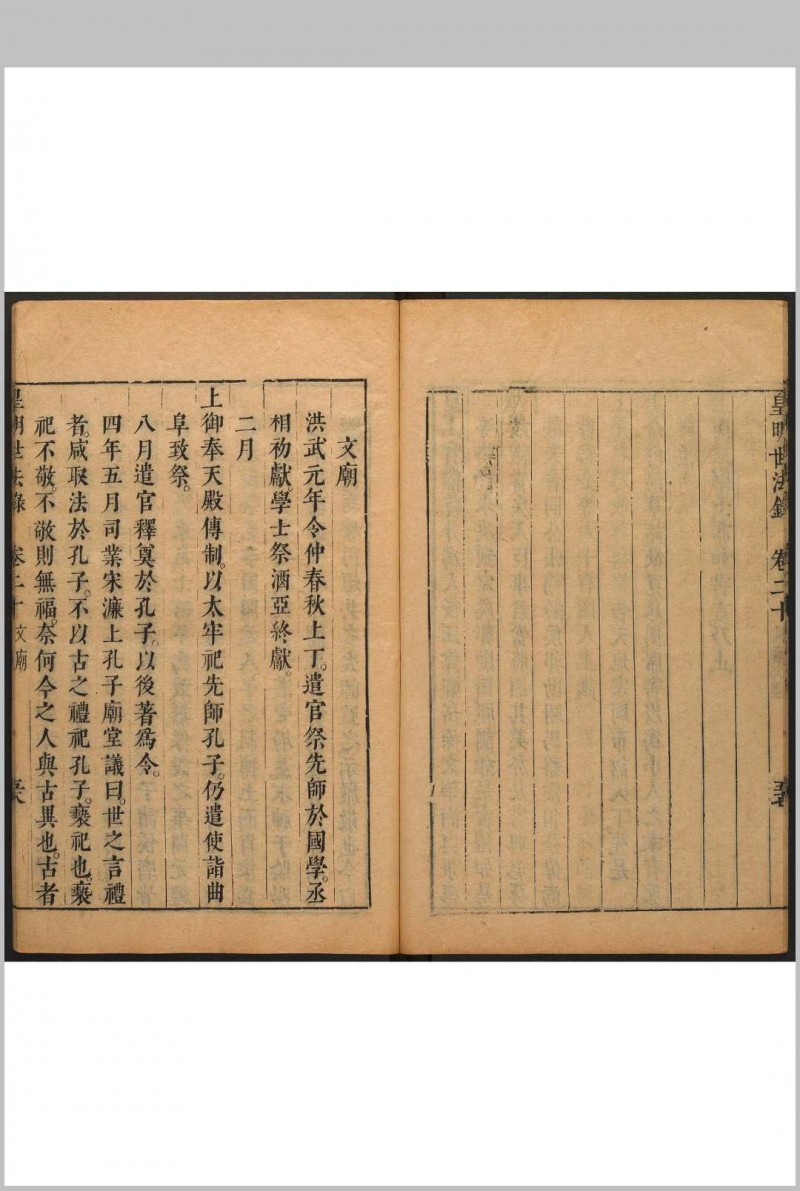 皇明世法錄
卷二十
文廟
洪武元年令仲春秋上丁。遣官祭先師於國學。丞
相初獻。學士祭酒亞終獻。
二月
上御奉天殿傳制。以太牢祀先師孔子。仍遣使詣曲
阜致祭。
八月遣官釋奠於孔子。以後著爲令。
四年五月司業宋濂上孔子廟堂議曰。世之言禮
者。咸取法於孔子。不以古之禮祀孔子。褻祀也。褻
祀不敬。不敬則無福。奈何今之人與古異也。古者
皇明世法錄
卷二十
文廟